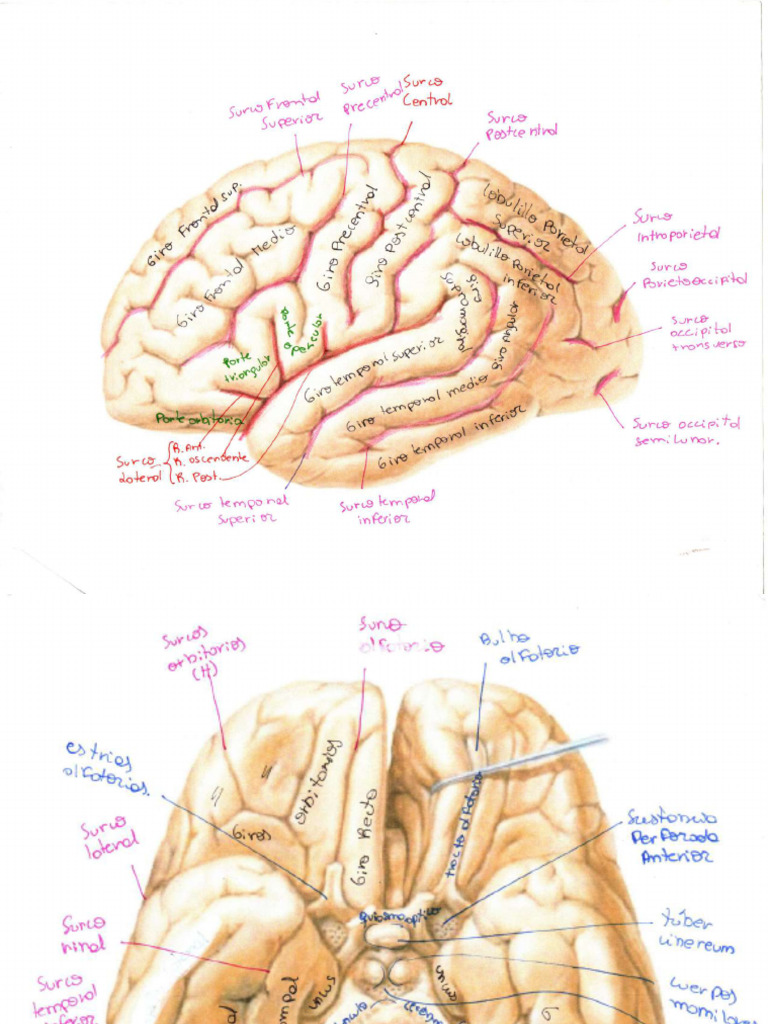 Surco Frontal
Superior
Surco
Precentral
Surco
Central
Surco
Postcentral
Giro Frontal sup.
Giro Frontal Medio
Giro Precentral
Giro Postcentral
Lobulillo Parietal
Superior
Lobulillo Parietal
inferior
Surco
intraparietal
Surco
Parietoccipital
Surco
occipital
transverso
Surco occipital
semilunar.
Giro
Supramarginal
Giro Angular
Parte
opercular
Parte
triangular
Parte orbitaria
Giro temporal superior
Giro temporal medio
Giro temporal inferior
Surco
lateral
R. Ant.
R. ascendente
R. Post.
Surco temporal
Superior
Surco temporal
inferior
Surcos
orbitarios
(H)
Surco
olfatorio
Bulbo
olfatorio
estrias
olfatorias.
Giros
orbitarios
Giro Recto
tracto olfatorio
Surco
lateral
Sustancia
Perforada
Anterior
quiasma optico
túber
cinereum
Surco
rinal
uncus
uncus
cuerpos
Surco
temporal